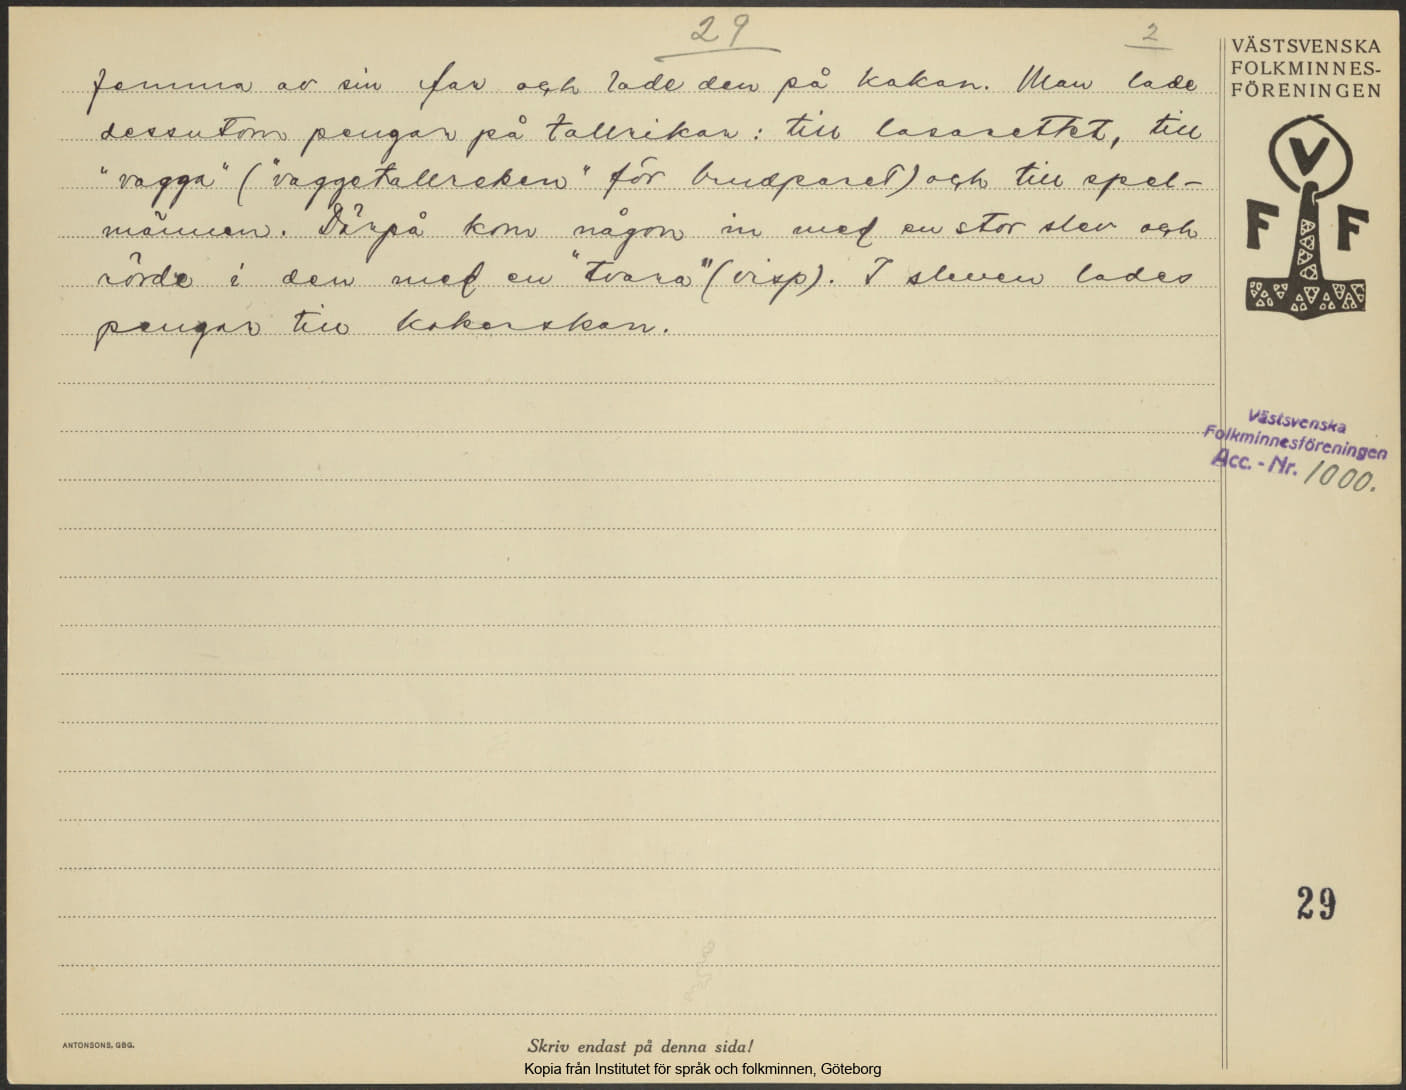 29
2
VÄSTSVENSKA
FOLKMINNES-
FÖRENINGEN
femma av sin far och lade den på kakan. Man lade
dessutom pengar på tallrikar: till lasarettet, till
"vagga" ("vaggetallreken" för brudparet) och till spel-
männen. Därpå kom någon in med en stor slev och
rörde i den med en "tvara" (visp). I sleven lades
pengar till kokerskan.
V
F F
Västsvenska
Folkminnesföreningen
Acc.-Nr. 1000.
29
ANTONSONS, GBG.
Skriv endast på denna sida!
Kopia från Institutet för språk och folkminnen, Göteborg